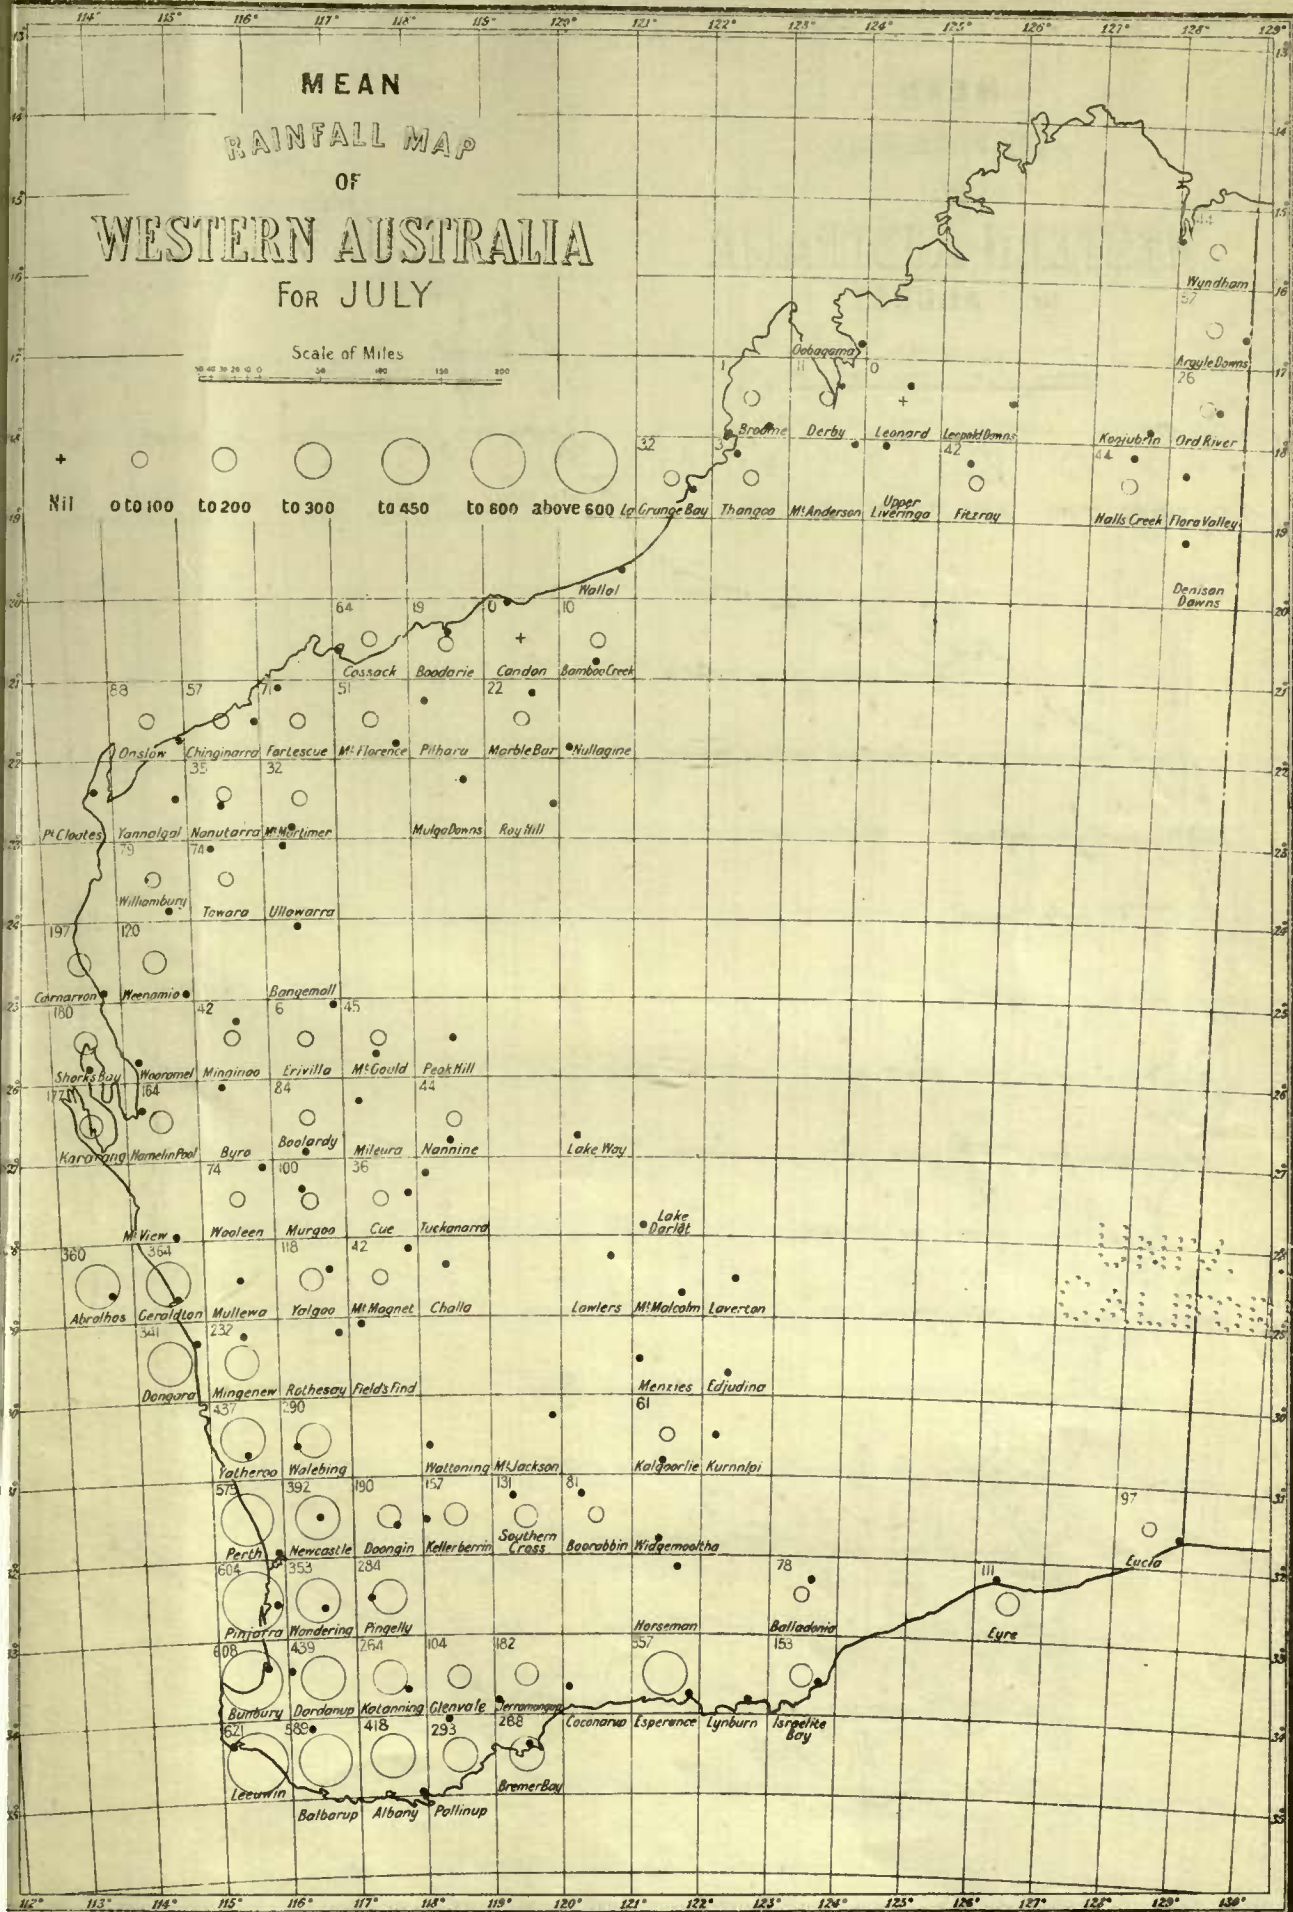 114° 115° 116° 117° 118° 119° 120° 121° 122° 123° 124° 125° 126° 127° 128° 129°
MEAN
RAINFALL MAP
OF
WESTERN AUSTRALIA
FOR JULY
Scale of Miles
50 40 30 20 10 0 50 100 150 200
Nil
0 to 100
to 200
to 300
to 450
to 600
above 600
44
Wyndham
57
Oobagama
1 11 0
Argyle Downs
26
Broome Derby Leonard Leopold Downs Konjubrin Ord River
32 3 42 44
La Grange Bay Thangoo Mt. Anderson Upper Liveringa Fitzroy Halls Creek Flora Valley
Wallal
Denison Downs
64 19 0 10
Cossack Boodarie Condon Bamboo Creek
88 57 71 51 22
Onslow Chinginarra Fortescue Mt. Florence Pilbara Marble Bar Nullagine
35 32
Pt. Cloates Yannalgal Nanutarra Mt. Mortimer Mulga Downs Roy Hill
79 74
Williambury Towara Ullawarra
197 120
Carnarvon Weenamia Bangemall
180 42 6 45
Sharks Bay Wooramel Minginoo Erivilla Mt. Gould Peak Hill
177 164 84 44
Kararang Hamelin Pool Byro Boolardy Mileura Nannine Lake Way
74 100 36
Mt. View Wooleen Murgoo Cue Tuckanarra Lake Darlôt
360 364 118 42
Abrolhos Geraldton Mullewa Yalgoo Mt. Magnet Challa Lawlers Mt. Malcolm Laverton
341 232
Dongara Mingenew Rothesay Field's Find Menzies Edjudina
437 290 61
Yatheroo Walebing Wattoning Mt. Jackson Kalgoorlie Kurnalpi
575 392 190 157 131 81 97
Perth Newcastle Doongin Kellerberrin Southern Cross Boorabbin Widgemooltha Eucla
604 353 284 78 111
Pinjarra Wandering Pingelly Norseman Balladonia Eyre
608 439 264 104 182 357 153
Bunbury Dardanup Katanning Glenvale Jerramongup Coconarup Esperance Lynburn Israelite Bay
621 589 418 293 288
Leeuwin Balbarup Albany Pallinup Bremer Bay
112° 113° 114° 115° 116° 117° 118° 119° 120° 121° 122° 123° 124° 125° 126° 127° 128° 129° 130°